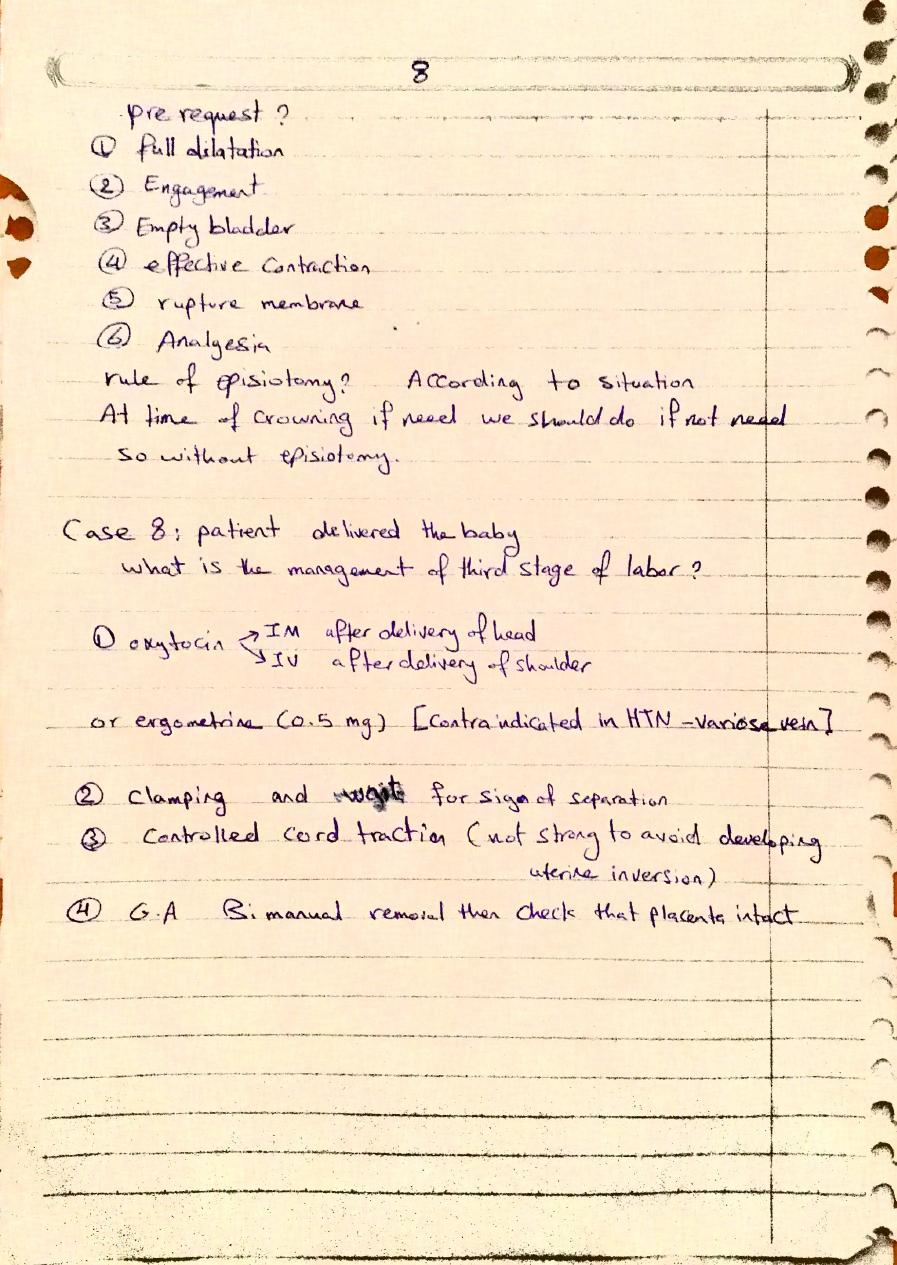 8
pre request ?
① full dilatation
② Engagement
③ Empty bladder
④ effective contraction
⑤ rupture membrane
⑥ Analgesia
rule of episiotomy? According to situation
At time of crowning if need we should do if not need
so without episiotomy.
Case 8: patient delivered the baby
what is the management of third stage of labor ?
① oxytocin → IM after delivery of head
↘ IV after delivery of shoulder
or ergometrine (0.5 mg) [contraindicated in HTN - variose vein]
② clamping and wait for sign of separation
③ controlled cord traction (not strong to avoid developing
uterine inversion)
④ G.A Bimanual removal then check that placenta intact